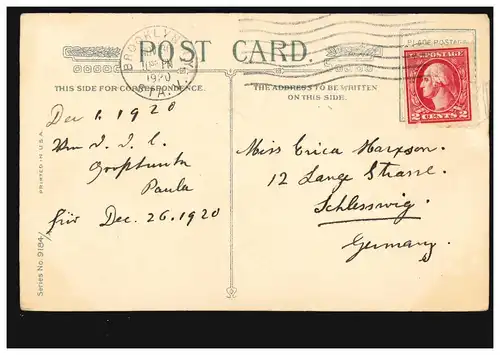 POST CARD.
THIS SIDE FOR CORRESPONDENCE.
THE ADDRESS TO BE WRITTEN
ON THIS SIDE.
BROOKLYN
PM
1920
STA.
PLACE POSTAGE
U.S. POSTAGE
2 CENTS 2
Dec 1. 1920
Von
Großtante
Paula
für Dec. 26. 1920
Miss Erica Harxson.
12 Lange Strasse.
Schlesswig.
Germany.
PRINTED IN U.S.A.
Series No. 9184/